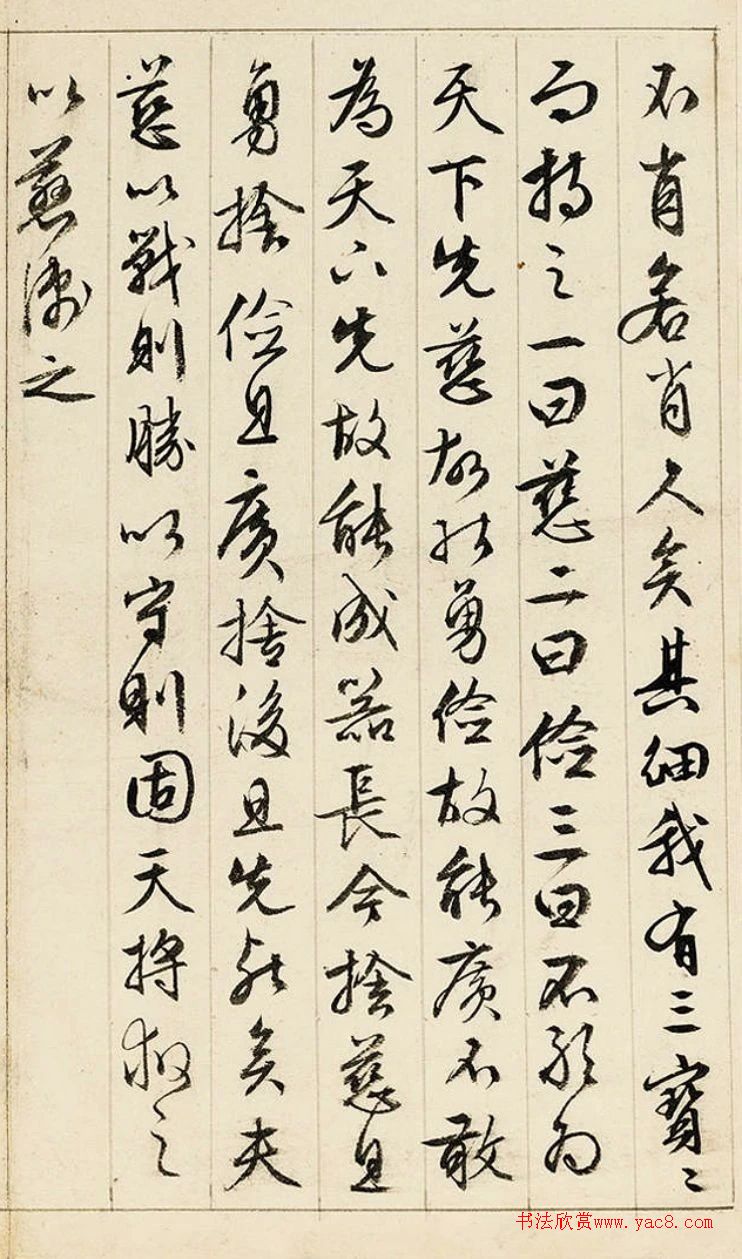 不肖若肖久矣其細我有三寶〻
而持之一曰慈二曰儉三曰不敢為
天下先慈故能勇儉故能廣不敢
為天下先故能成器長今捨慈且
勇捨儉且廣捨後且先死矣夫
慈以戰則勝以守則固天將救之
以慈衛之
书法欣赏www.yac8.com